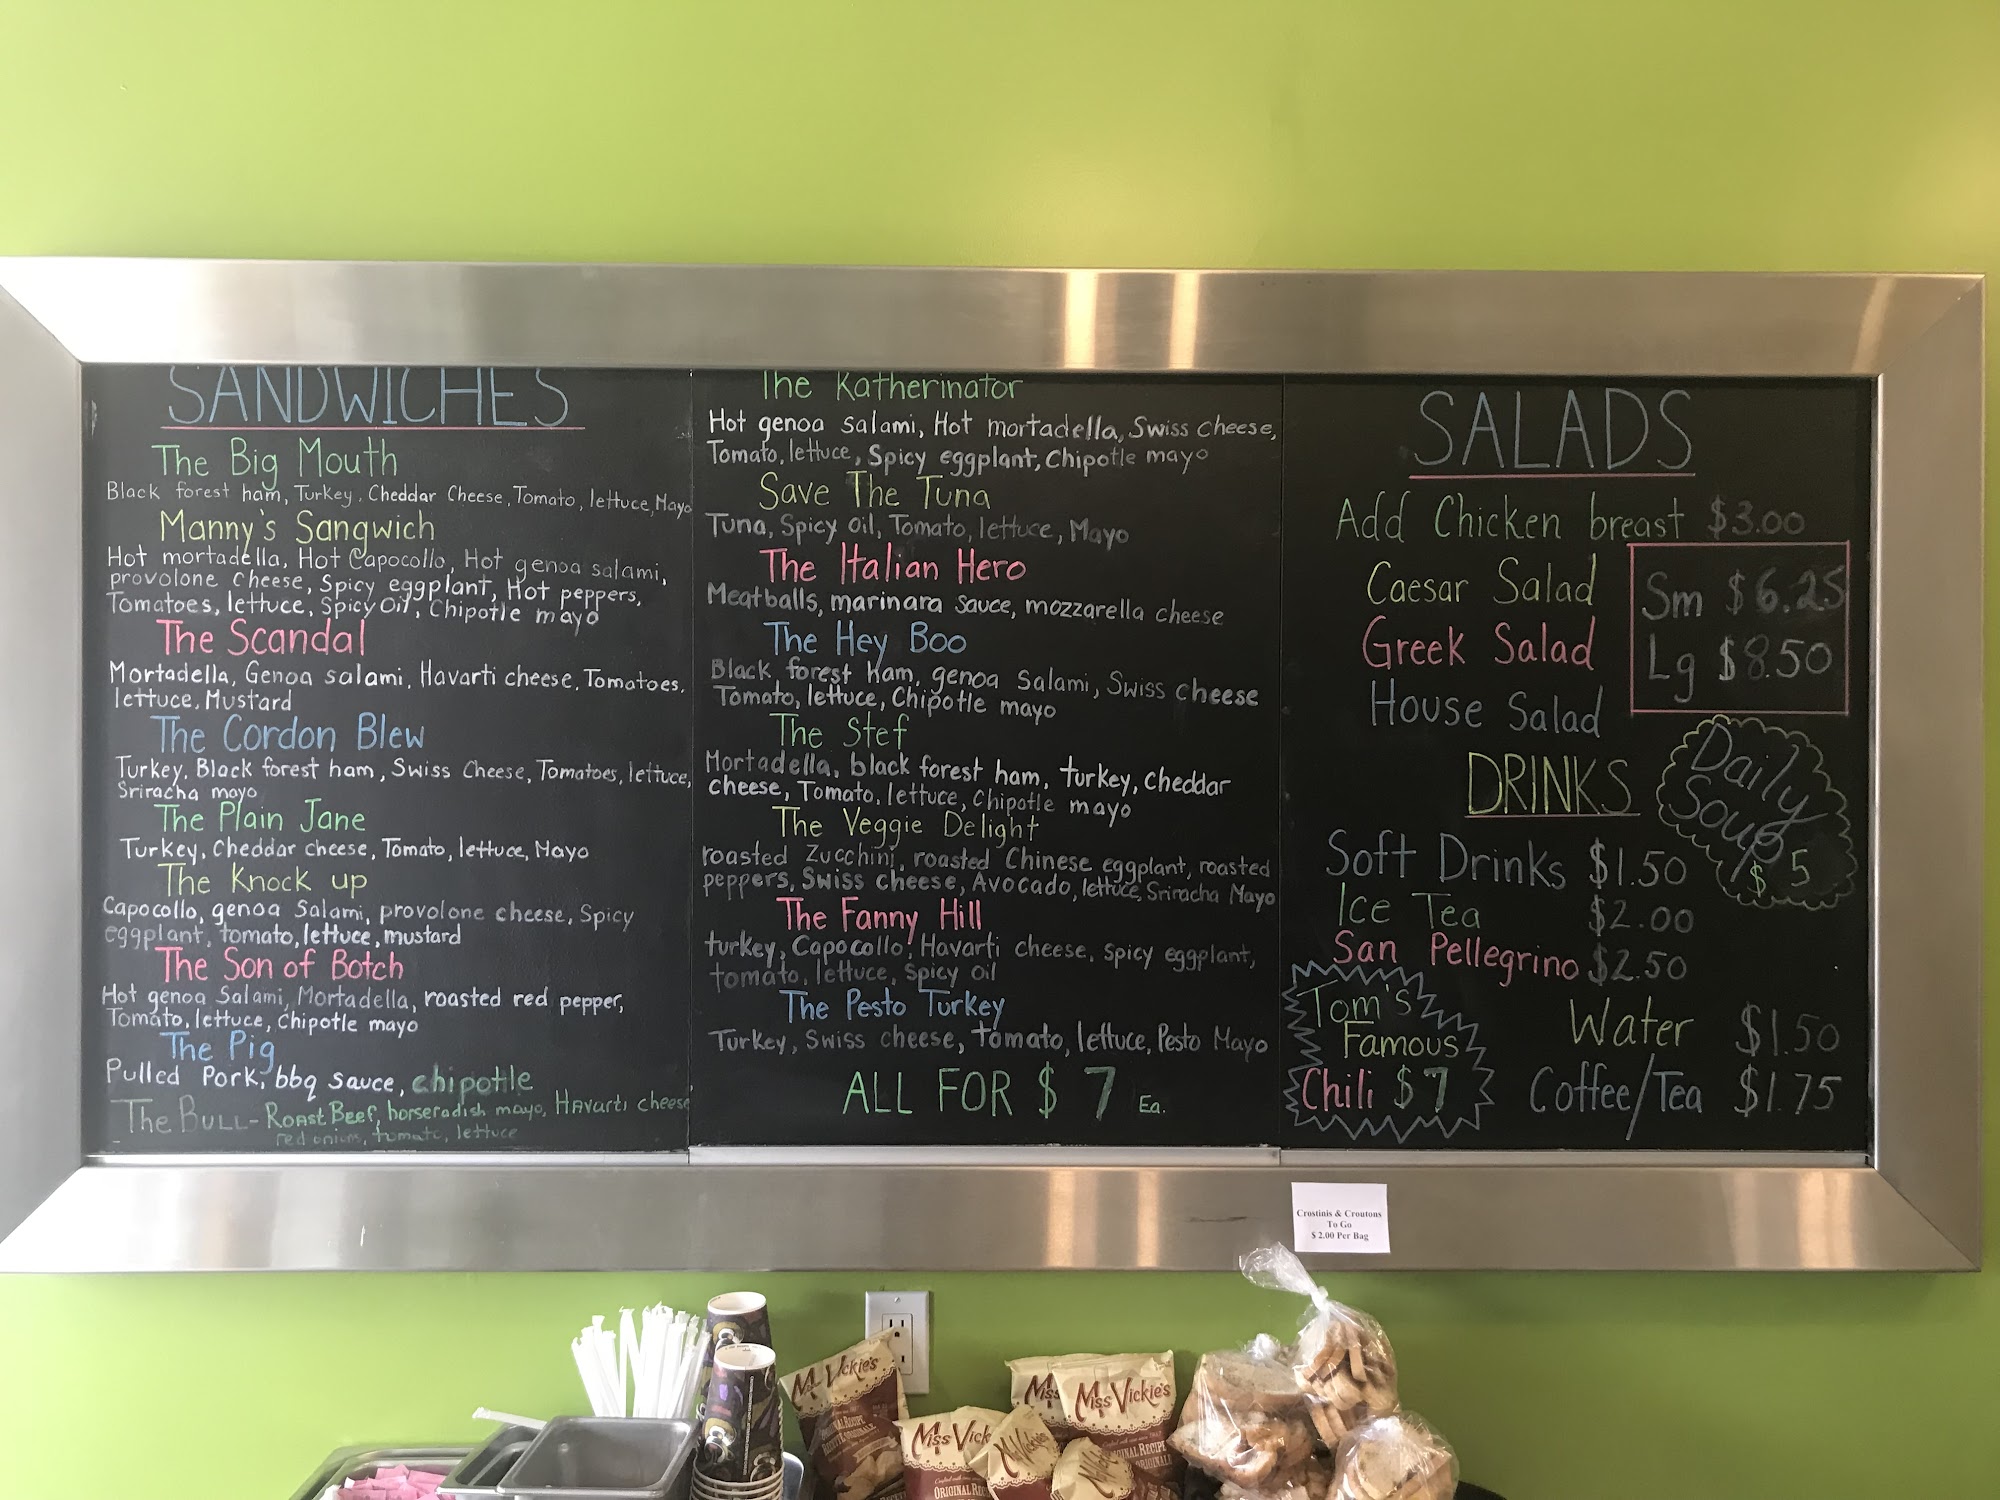 SANDWICHES
The Big Mouth
Black forest ham, Turkey, Cheddar Cheese, Tomato, lettuce, Mayo
Manny's Sangwich
Hot mortadella, Hot Capocollo, Hot genoa salami,
provolone cheese, Spicy eggplant, Hot peppers,
Tomatoes, lettuce, Spicy Oil, Chipotle mayo
The Scandal
Mortadella, Genoa salami, Havarti cheese, Tomatoes,
lettuce, Mustard
The Cordon Blew
Turkey, Black forest ham, Swiss Cheese, Tomatoes, lettuce,
Sriracha mayo
The Plain Jane
Turkey, Cheddar cheese, Tomato, lettuce, Mayo
The Knock up
Capocollo, genoa Salami, provolone cheese, Spicy
eggplant, tomato, lettuce, mustard
The Son of Botch
Hot genoa Salami, Mortadella, roasted red pepper,
Tomato, lettuce, Chipotle mayo
The Pig
Pulled Pork, bbq sauce, chipotle
The BULL- ROAST BEEF, horseradish mayo, HAvarti cheese
red onions, tomato, lettuce
The Katherinator
Hot genoa salami, Hot mortadella, Swiss cheese,
Tomato, lettuce, Spicy eggplant, Chipotle mayo
Save The Tuna
Tuna, Spicy Oil, Tomato, lettuce, Mayo
The Italian Hero
Meatballs, marinara sauce, mozzarella cheese
The Hey Boo
Black forest ham, genoa Salami, Swiss cheese
Tomato, lettuce, Chipotle mayo
The Stef
Mortadella, black forest ham, turkey, cheddar
cheese, Tomato, lettuce, Chipotle mayo
The Veggie Delight
roasted Zucchini, roasted Chinese eggplant, roasted
peppers, Swiss cheese, Avocado, lettuce, Sriracha Mayo
The Fanny Hill
turkey, Capocollo, Havarti cheese, Spicy eggplant,
tomato, lettuce, Spicy oil
The Pesto Turkey
Turkey, Swiss cheese, Tomato, lettuce, Pesto Mayo
ALL FOR $7 Ea.
SALADS
Add Chicken breast $3.00
Caesar Salad
Greek Salad
House Salad
Sm $6.25
Lg $8.50
DRINKS
Daily
Soup
$5
Soft Drinks $1.50
Ice Tea $2.00
San Pellegrino $2.50
Water $1.50
Coffee/Tea $1.75
Tom's
Famous
Chili $7
Crostinis & Croutons
To Go
$ 2.00 Per Bag
Miss Vickie's
Miss Vickie's
ORIGINAL RECIPE